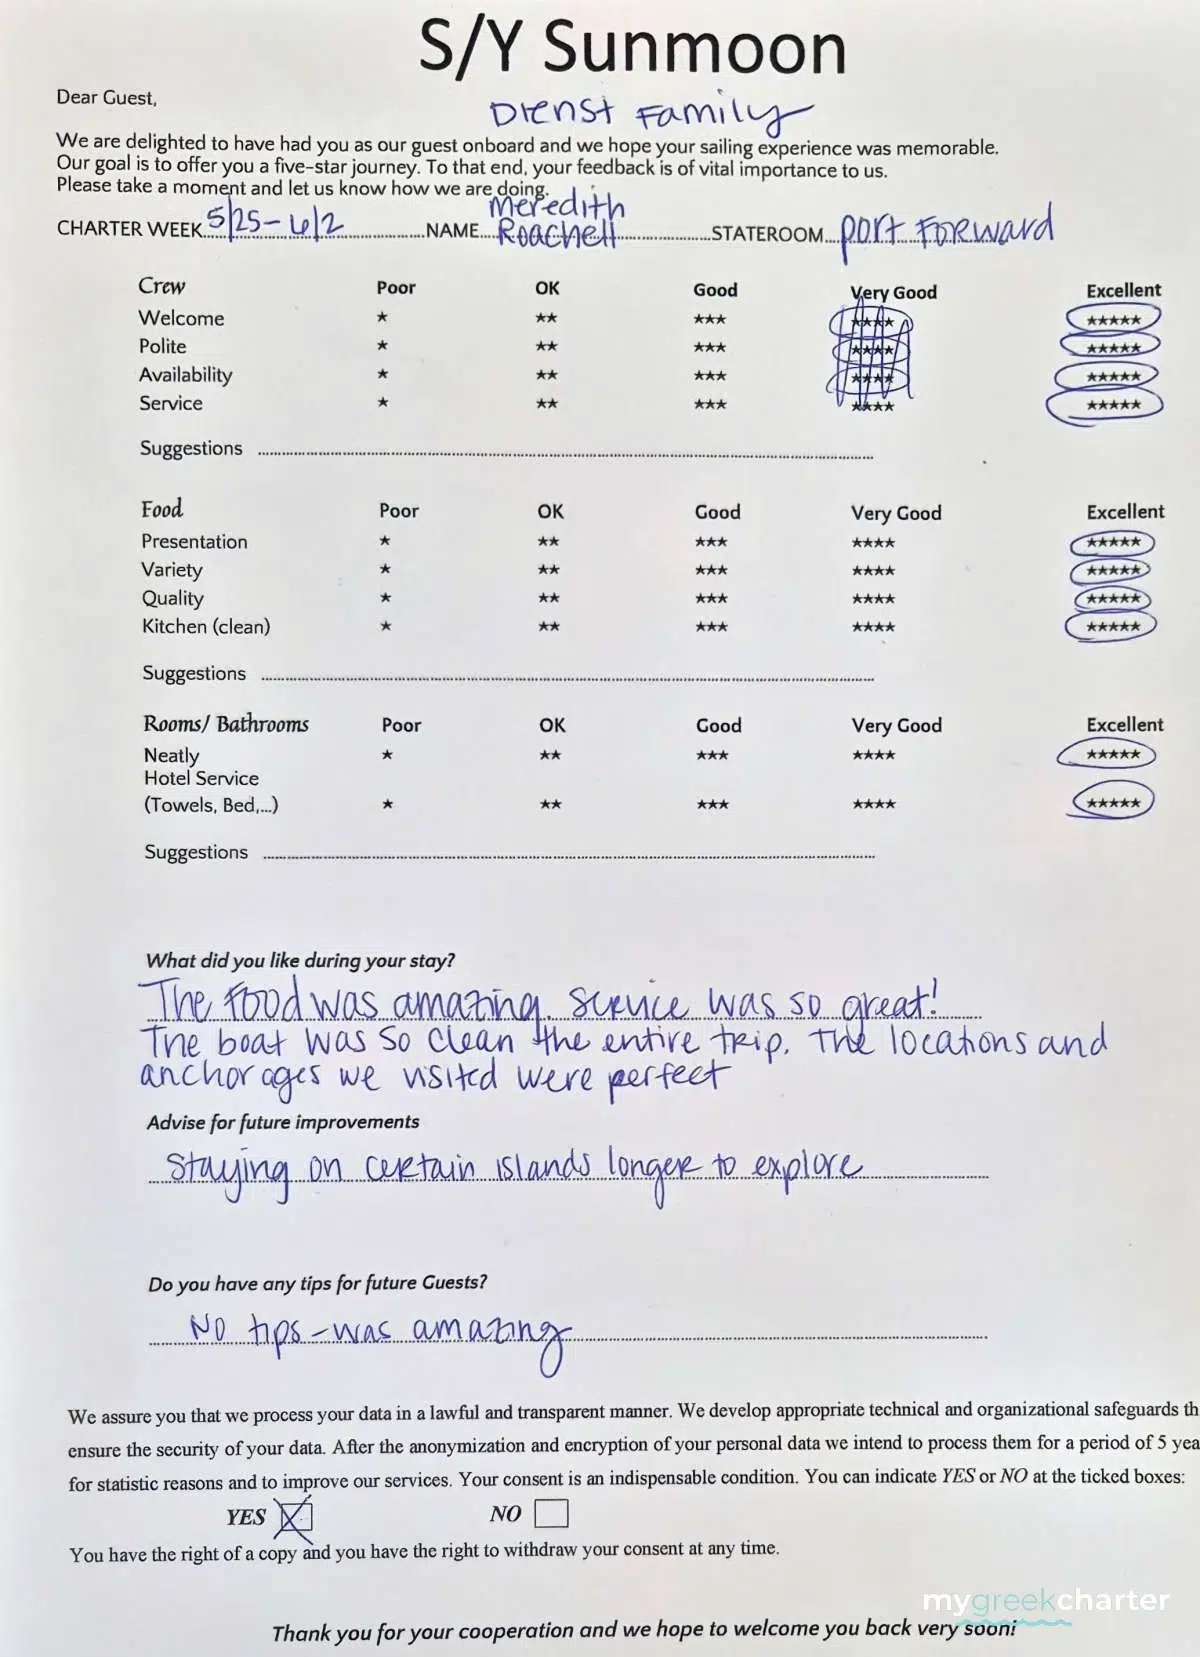 S/Y Sunmoon
Dear Guest,
Dienst Family
We are delighted to have had you as our guest onboard and we hope your sailing experience was memorable.
Our goal is to offer you a five-star journey. To that end, your feedback is of vital importance to us.
Please take a moment and let us know how we are doing.
CHARTER WEEK 5/25-6/2 NAME Meredith Roachell STATEROOM port Forward
Crew Poor OK Good Very Good Excellent
Welcome ★ ★★ ★★★ ★★★★ ★★★★★
Polite ★ ★★ ★★★ ★★★★ ★★★★★
Availability ★ ★★ ★★★ ★★★★ ★★★★★
Service ★ ★★ ★★★ ★★★★ ★★★★★
Suggestions
Food Poor OK Good Very Good Excellent
Presentation ★ ★★ ★★★ ★★★★ ★★★★★
Variety ★ ★★ ★★★ ★★★★ ★★★★★
Quality ★ ★★ ★★★ ★★★★ ★★★★★
Kitchen (clean) ★ ★★ ★★★ ★★★★ ★★★★★
Suggestions
Rooms/ Bathrooms Poor OK Good Very Good Excellent
Neatly ★ ★★ ★★★ ★★★★ ★★★★★
Hotel Service
(Towels, Bed,...) ★ ★★ ★★★ ★★★★ ★★★★★
Suggestions
What did you like during your stay?
The food was amazing. Service was so great!
The boat was so clean the entire trip. The locations and
anchorages we visited were perfect
Advise for future improvements
Staying on certain islands longer to explore
Do you have any tips for future Guests?
No tips - was amazing
We assure you that we process your data in a lawful and transparent manner. We develop appropriate technical and organizational safeguards th
ensure the security of your data. After the anonymization and encryption of your personal data we intend to process them for a period of 5 yea
for statistic reasons and to improve our services. Your consent is an indispensable condition. You can indicate YES or NO at the ticked boxes:
YES NO
You have the right of a copy and you have the right to withdraw your consent at any time.
mygreekcharter
Thank you for your cooperation and we hope to welcome you back very soon!